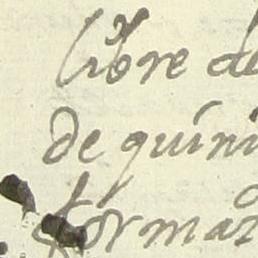 libre de
de quini
format